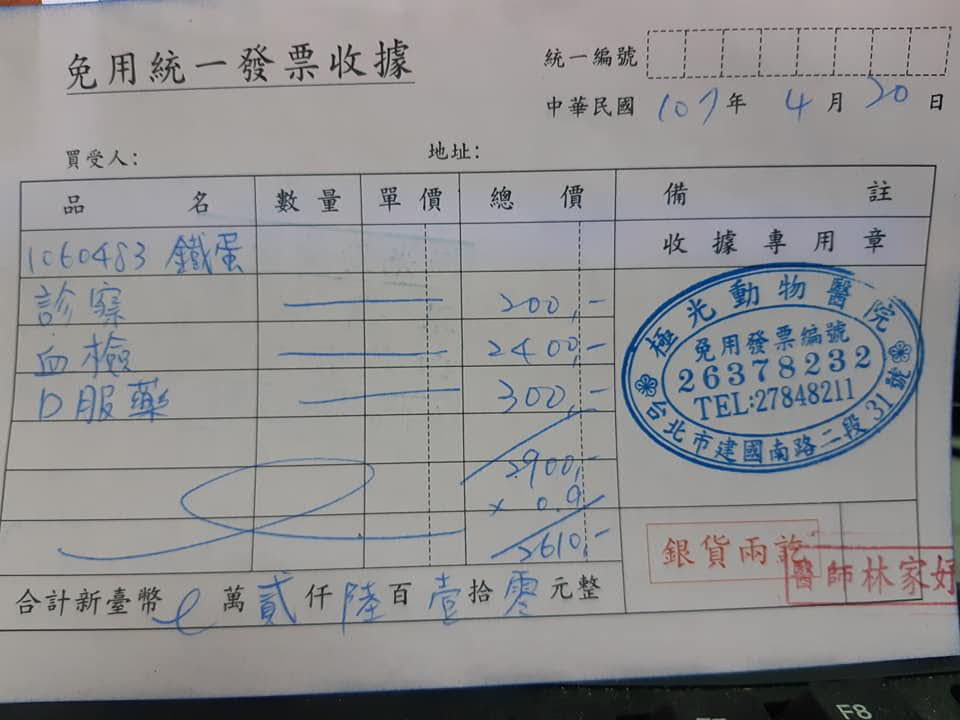 免用統一發票收據
統一編號
中華民國 107 年 4 月 20 日
買受人：
地址：
品 名 數量 單價 總 價 備 註
1060483 鐵蛋
收據專用章
診察 200,-
血檢 2400,-
口服藥 300,-
2900,-
x 0.9
2610,-
極光動物醫院
免用發票編號
26378232
TEL:27848211
台北市建國南路二段31號
銀貨兩訖
醫師林家好
合計新臺幣 萬 貳 仟 陸 百 壹 拾 零 元整
F8